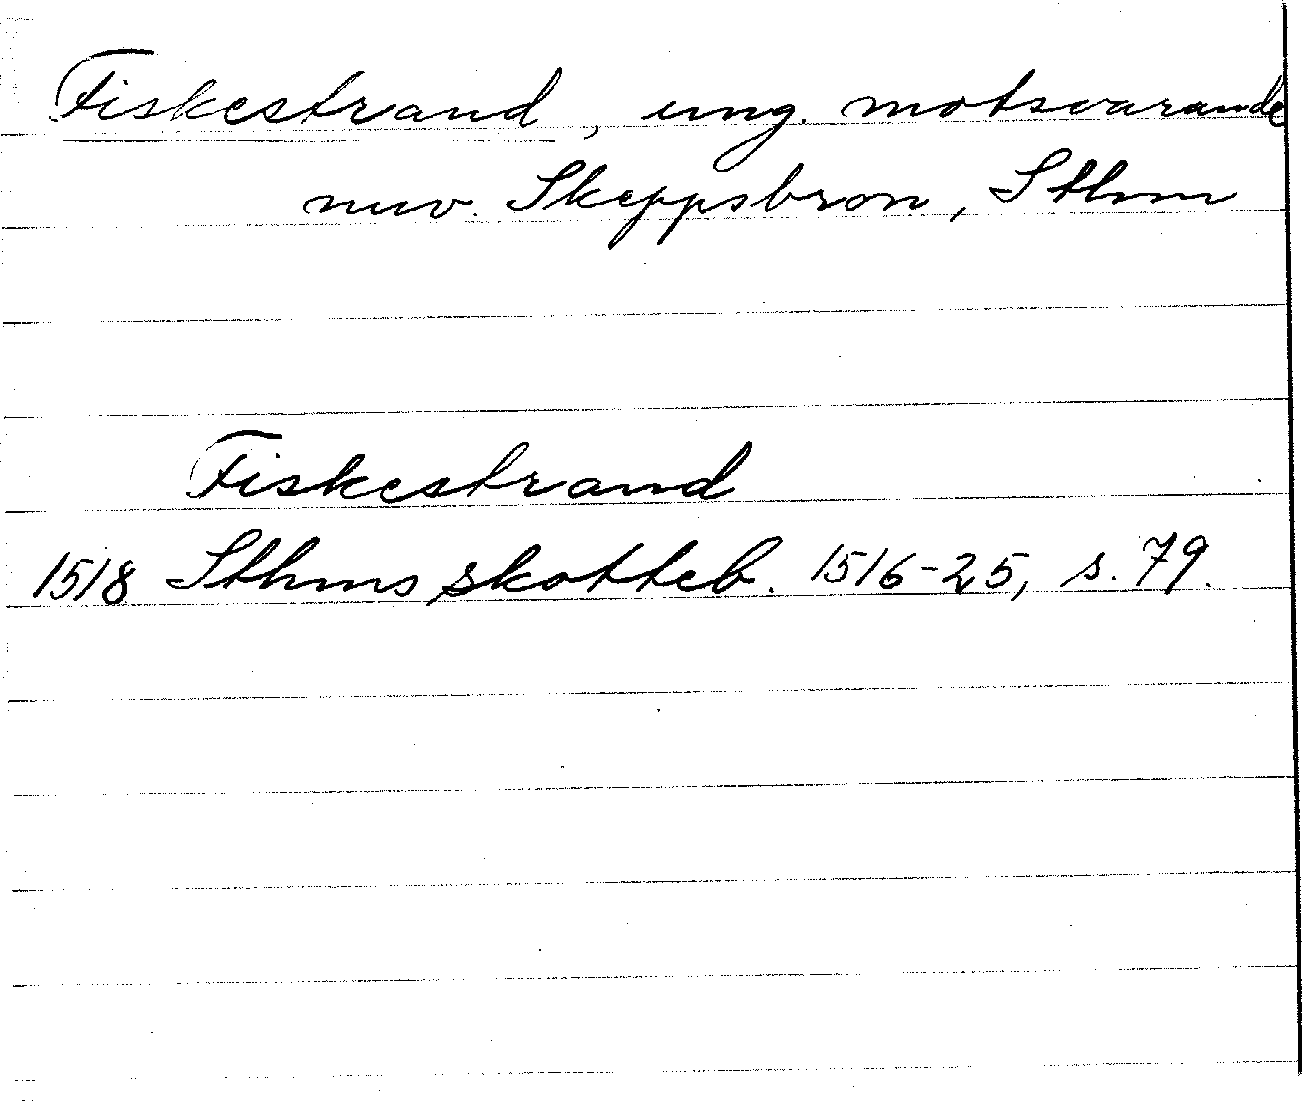 Fiskestrand, ung. motsvarande
nuv. Skeppsbron, Sthm
Fiskestrand
1518 Sthms skotteb. 1516-25, s. 79.